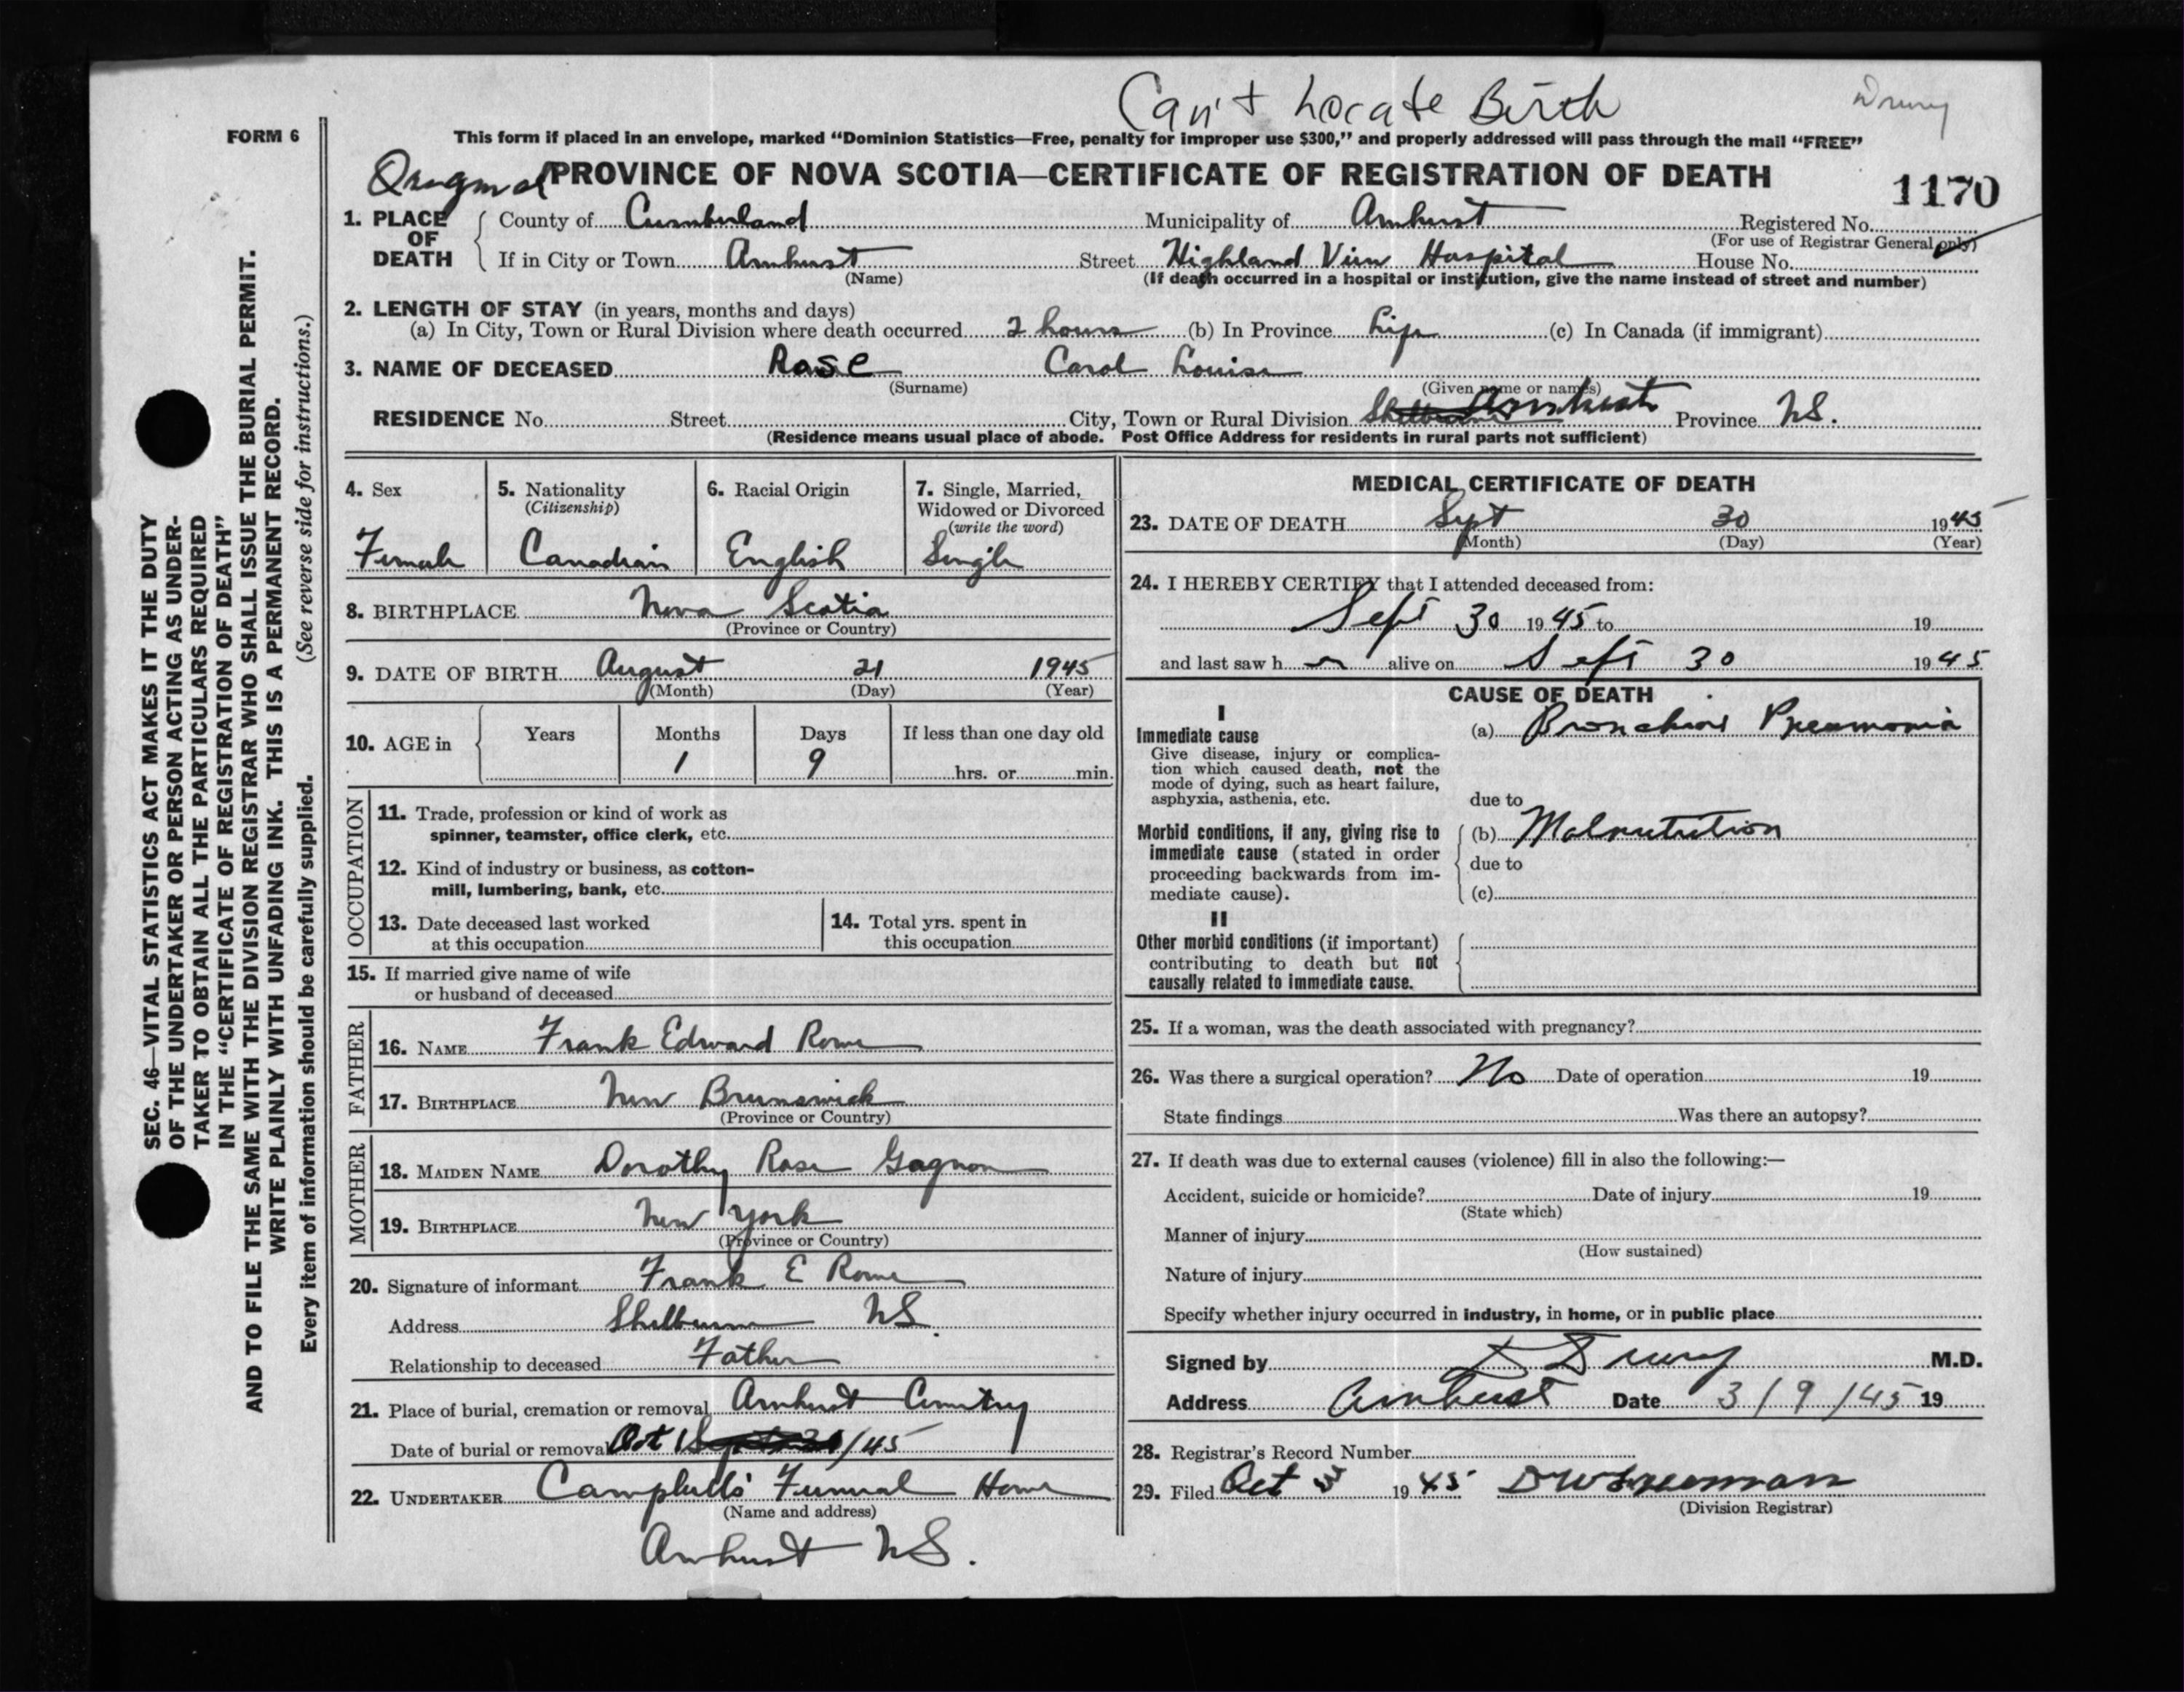 Can't Locate Birth
Drury
FORM 6
This form if placed in an envelope, marked “Dominion Statistics—Free, penalty for improper use $300,” and properly addressed will pass through the mail “FREE”
Original PROVINCE OF NOVA SCOTIA—CERTIFICATE OF REGISTRATION OF DEATH
1170
1. PLACE OF DEATH County of Cumberland Municipality of Amherst Registered No.
(For use of Registrar General only)
If in City or Town Amherst Street Highland View Hospital House No.
(Name) (If death occurred in a hospital or institution, give the name instead of street and number)
2. LENGTH OF STAY (in years, months and days)
(a) In City, Town or Rural Division where death occurred 2 hours (b) In Province Life (c) In Canada (if immigrant)
3. NAME OF DECEASED Rose Carol Louise
(Surname) (Given name or names)
RESIDENCE No. Street City, Town or Rural Division Shelburne Amherst Province NS.
(Residence means usual place of abode. Post Office Address for residents in rural parts not sufficient)
4. Sex
Female
5. Nationality
(Citizenship)
Canadian
6. Racial Origin
English
7. Single, Married,
Widowed or Divorced
(write the word)
Single
8. BIRTHPLACE Nova Scotia
(Province or Country)
9. DATE OF BIRTH August 21 1945
(Month) (Day) (Year)
10. AGE in Years Months Days If less than one day old
1 9 hrs. or min.
OCCUPATION
11. Trade, profession or kind of work as
spinner, teamster, office clerk, etc.
12. Kind of industry or business, as cotton-
mill, lumbering, bank, etc.
13. Date deceased last worked
at this occupation
14. Total yrs. spent in
this occupation
15. If married give name of wife
or husband of deceased
FATHER
16. NAME Frank Edward Rowe
17. BIRTHPLACE New Brunswick
(Province or Country)
MOTHER
18. MAIDEN NAME Dorothy Rose Gagnon
19. BIRTHPLACE New York
(Province or Country)
20. Signature of informant Frank E Rowe
Address Shelburne NS.
Relationship to deceased Father
21. Place of burial, cremation or removal Amherst Cemetry
Date of burial or removal Oct 1 /45
22. UNDERTAKER Campbell's Funeral Home
(Name and address)
Amherst NS.
MEDICAL CERTIFICATE OF DEATH
23. DATE OF DEATH Sept 30 1945
(Month) (Day) (Year)
24. I HEREBY CERTIFY that I attended deceased from:
Sept 30 1945 to 19
and last saw h er alive on Sept 30 1945
CAUSE OF DEATH
I
Immediate cause (a) Bronchial Pneamonia
Give disease, injury or complica-
tion which caused death, not the
mode of dying, such as heart failure,
asphyxia, asthenia, etc.
due to
Morbid conditions, if any, giving rise to (b) Malnutrition
immediate cause (stated in order due to
proceeding backwards from im-
mediate cause). (c)
II
Other morbid conditions (if important)
contributing to death but not
causally related to immediate cause.
25. If a woman, was the death associated with pregnancy?
26. Was there a surgical operation? No Date of operation 19
State findings Was there an autopsy?
27. If death was due to external causes (violence) fill in also the following:—
Accident, suicide or homicide? Date of injury 19
(State which)
Manner of injury
(How sustained)
Nature of injury
Specify whether injury occurred in industry, in home, or in public place
Signed by D Drury M.D.
Address Amherst Date 3/9/45 19
28. Registrar's Record Number
29. Filed Oct 3 1945
(Division Registrar)
SEC. 46—VITAL STATISTICS ACT MAKES IT THE DUTY
OF THE UNDERTAKER OR PERSON ACTING AS UNDER-
TAKER TO OBTAIN ALL THE PARTICULARS REQUIRED
IN THE “CERTIFICATE OF REGISTRATION OF DEATH”
AND TO FILE THE SAME WITH THE DIVISION REGISTRAR WHO SHALL ISSUE THE BURIAL PERMIT.
WRITE PLAINLY WITH UNFADING INK. THIS IS A PERMANENT RECORD.
Every item of information should be carefully supplied. (See reverse side for instructions.)